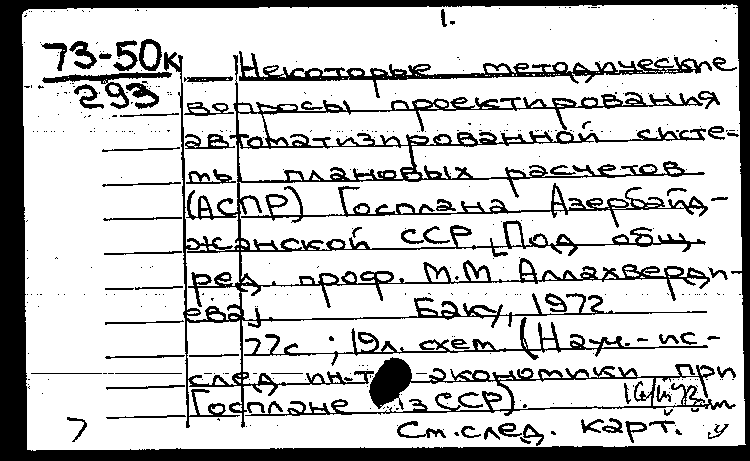 1.
73-50к
293
Некоторые методические
вопросы проектирования
автоматизированной систе-
мы плановых расчетов
(АСПР) Госплана Азербайд-
жанской ССР. [Под общ.
ред. проф. М.М. Аллахверди-
ева].  Баку, 1972.
77с.; 19л. схем (Науч.-ис-
след. ин-т экономики при
Госплане АзССР).
См. след. карт.